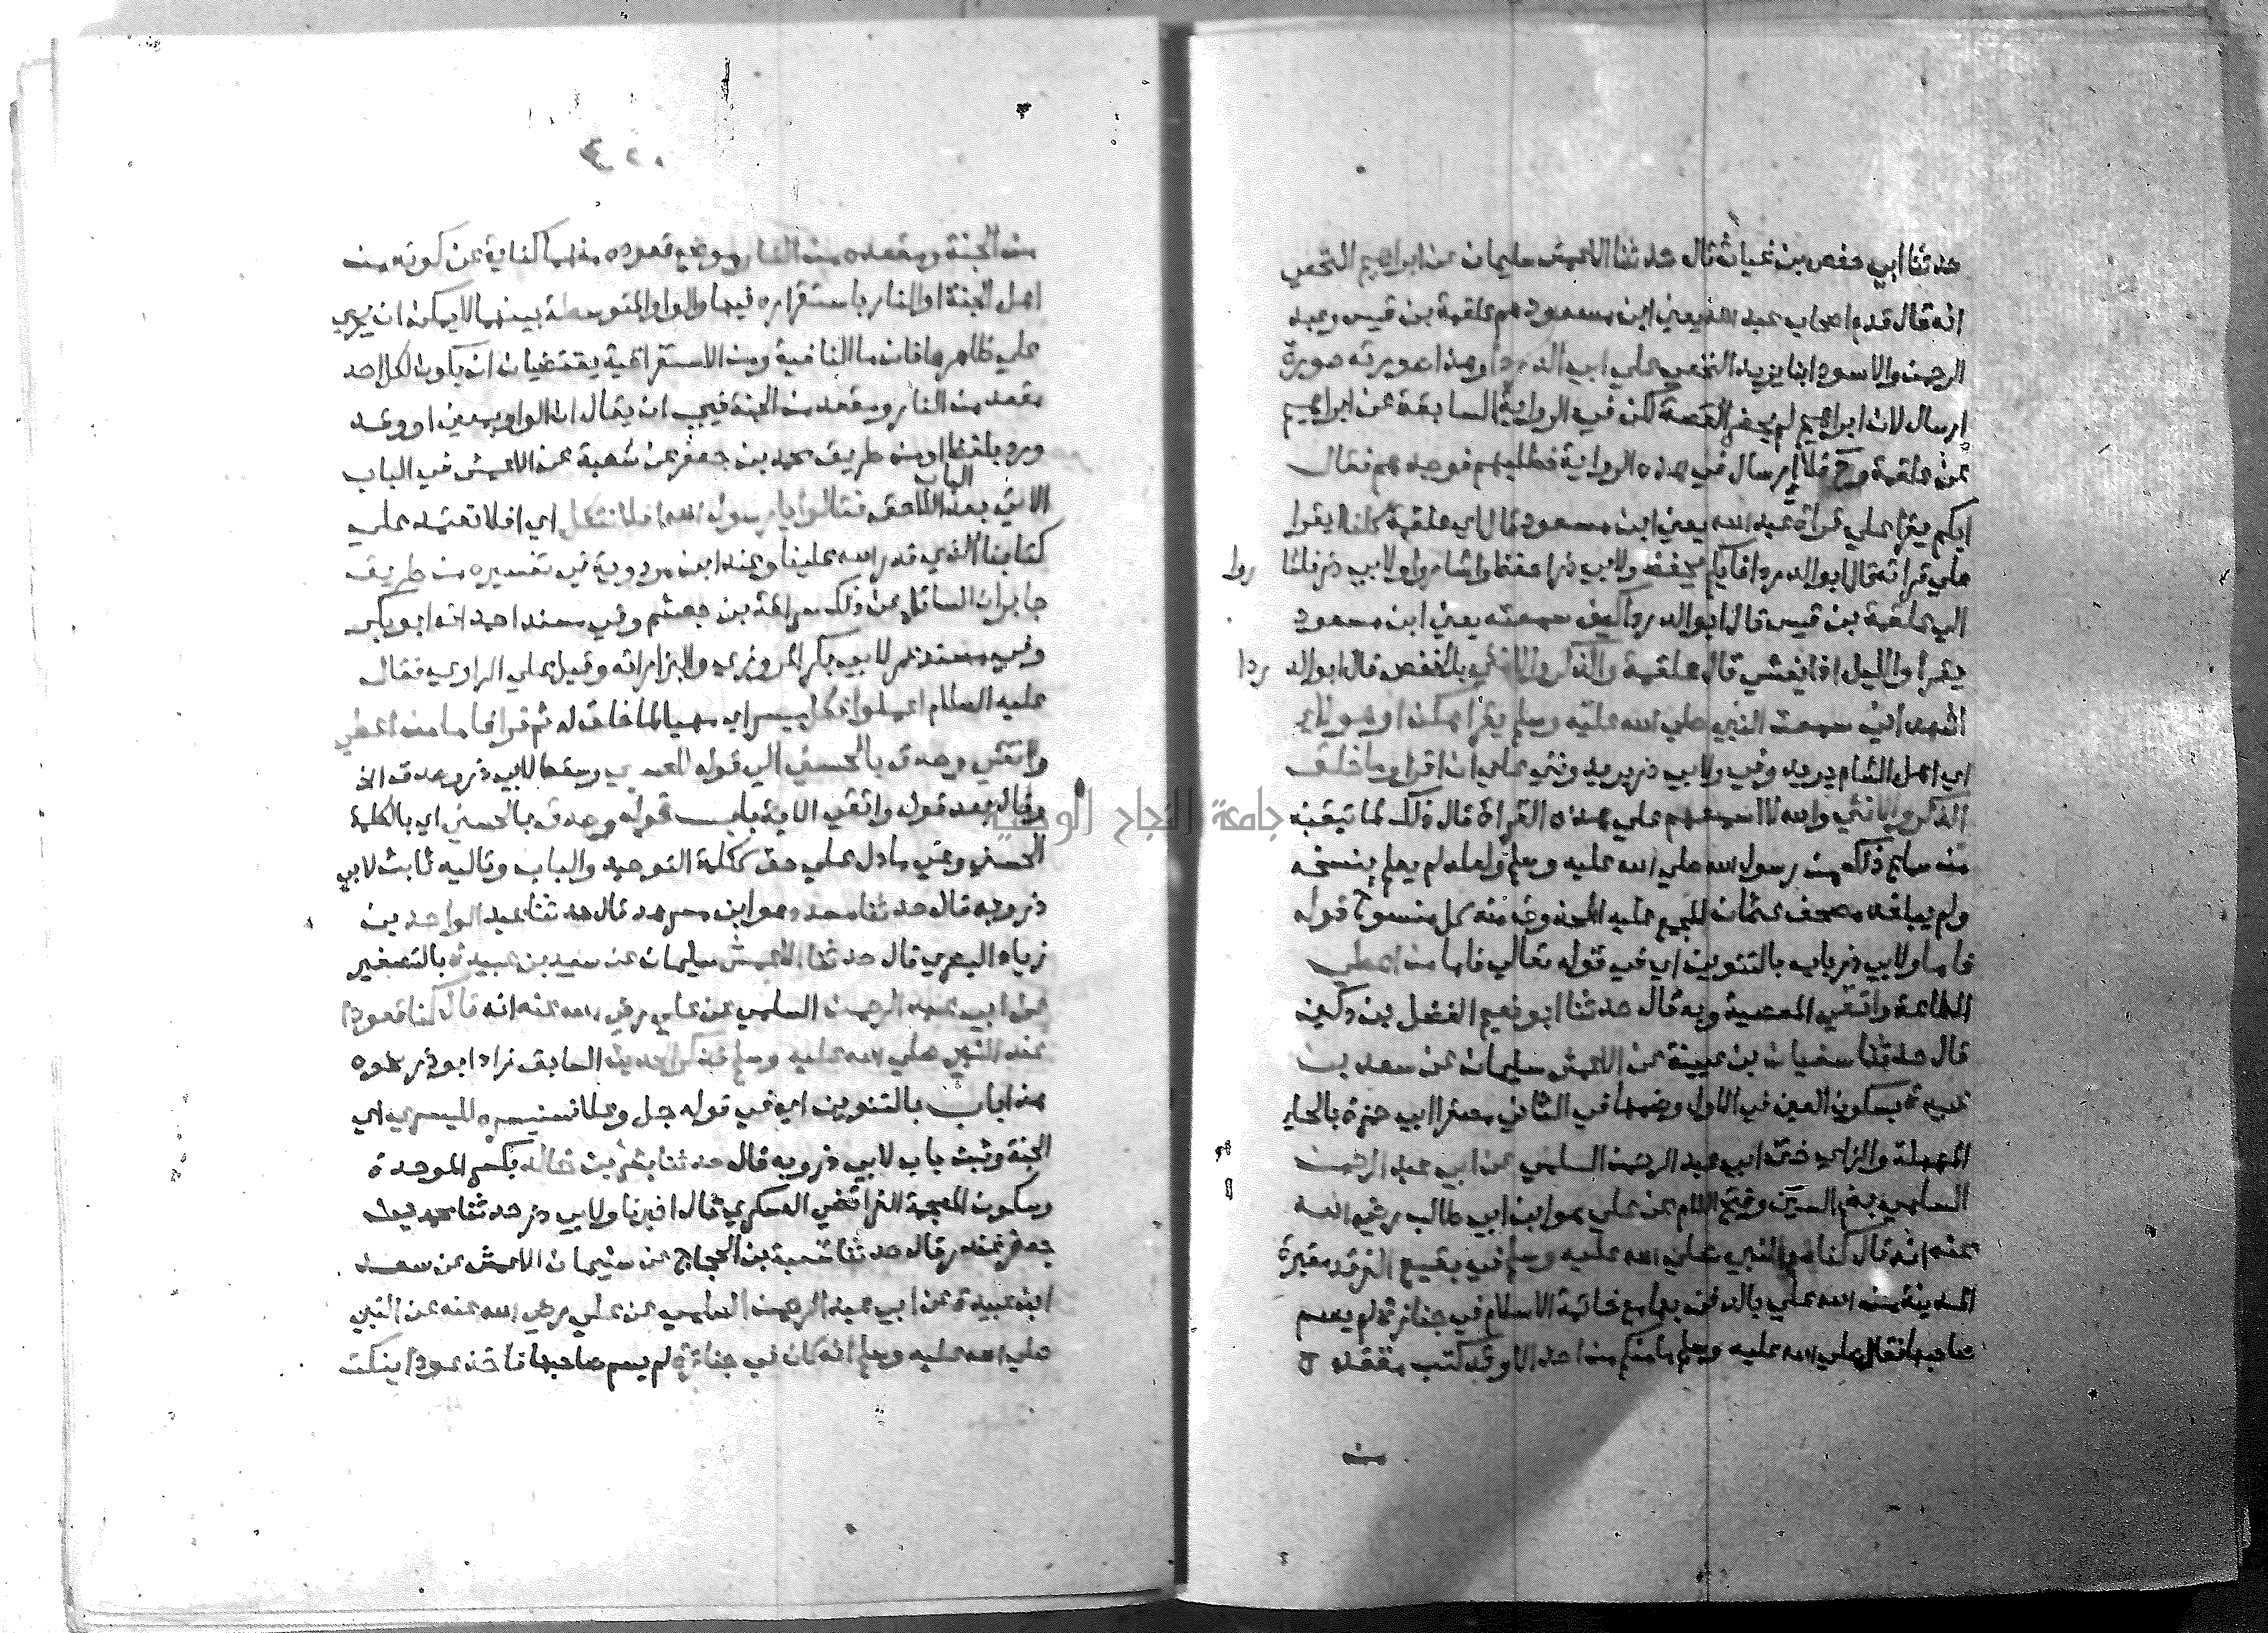 حدثنا ابي حفص بن غياث قال حدثنا الاعمش سليمان عن ابراهيم النخعي
انه قال قدم اصحاب عبد الله يعني ابن مسعود هم علقمة بن قيس وعبد
الرحمن والاسود ابنا يزيد النخعي علي ابي الدرداء وهذا صورته صورة
ارسال لان ابراهيم لم يحضر القصة لكن في الرواية السابقة عن ابراهيم
عن علقمة وح فلا ارسال في هذه الرواية فطلبهم فوجدهم فقال
ايكم يقرا علي قراة عبد الله يعني ابن مسعود قال اي علقمة كلنا يقرا
علي قراته قال ابو الدرداء فايكم يحفظ ولابي ذر احفظ واشاروا ولابي ذر فاشا روا
الي علقمة بن قيس قال ابو الدرداء كيف سمعته يعني ابن مسعود
يقرأ والليل اذا يغشي قال علقمة والذكر والانثي بالخفض قال ابو الد ردا
اشهد اني سمعت النبي صلي الله عليه وسلم يقرا هكذا وهولاء
اي اهل الشام يريد وفي ولابي ذر يريدونني علي ان اقرا وما خلق
الذكر والانثي والله لا اسمعهم علي هذه القراة قال ذلك لما تيقنه
من سماع ذلك من رسول الله صلي الله عليه وسلم ولعله لم يعلم بنسخه
ولم يبلغه مصحف عثمان المجمع عليه المحذوف منه كل منسوخ قوله
فاما ولابي ذر باب بالتنوين اي في قوله تعالي فاما من اعطي
الطاعة واتقي المعصية وبه قال حدثنا ابو نعيم الفضل بن دكين
قال حدثنا سفيان بن عيينة عن الاعمش سليمان عن سعد بن
عبيدة بسكون العين في الاول وضمها في الثاني مصغرا ابي حمزة بالحاء
المهملة والزاي ختن ابي عبد الرحمن السلمي عن ابي عبد الرحمن
السلمي بضم السين وفتح اللام عن علي هو ابن ابي طالب رضي الله
عنه انه قال كنا مع النبي صلي الله عليه وسلم في بقيع الغرقد مقبرة
المدينة من الله علي بالدفن بها مع خاتمة الاسلام في جنازة لم يسم
صاحبها فقال صلي الله عليه وسلم ما منكم من احد الا وقد كتب مقعده
من
من الجنة ومقعده من النار موضع قعوده منهما كناية عن كونه من
اهل الجنة او النار باستقراره فيها والواو المتوسطة بينهما لا يمكن ان يجري
علي ظاهرها فان ما النافية ومن الاستغراقية يقتضيان ان يكون لكل احد
مقعد من النار ومقعد من الجنة فيجب ان يقال ان الواو بمعني او وقد
ورد بلفظ او من طريق محمد بن جعفر عن شعبة عن الاعمش في الباب
الباب
الاتي بعد اللاحق فقالوا يا رسول الله افلا نتكل اي افلا نعتمد علي
كتابنا الذي قدر الله علينا وعند ابن مردوية في تفسيره من طريق
جابر ان السائل عن ذلك سراقة بن جعشم وفي مسند احمد انه ابو بكر
وفي مسند عمر لابي بكر المروزي والبزار انه وقيل علي الراوي فقال
عليه السلام اعملوا فكل ميسر اي مهيا لما خلق له ثم قرا فاما من اعطي
واتقي وصدق بالحسني الي قوله للعسري وسقط لابي ذر وصدق الخ
وقال بعد قوله واتقي الاية باب قوله وصدق بالحسني اي بالكلمة
الحسني وهي ما دل علي حق ككلمة التوحيد والباب وتاليه ثابت لابي
ذر وبه قال حدثنا مسدد هو ابن مسرهد قال حدثنا عبد الواحد بن
زياد البصري قال حدثنا الاعمش سليمان عن سعد بن عبيدة بالتصغير
عن ابي عبد الرحمن السلمي عن علي رضي الله عنه انه قال كنا قعودا
عند النبي صلي الله عليه وسلم فذكر الحديث السابق زاد ابو ذر نحوه
هذا باب بالتنوين اي في قوله جل وعلا فسنيسره لليسري اي
الجنة وثبت باب لابي ذر وبه قال حدثنا بشر بن خالد بكسر الموحدة
وسكون المعجمة الفرائضي العسكري قال اخبرنا ولابي ذر حدثنا محمد بن
جعفر غندر قال حدثنا شعبة بن الحجاج عن سليمان الاعمش عن سعد
ابن عبيدة عن ابي عبد الرحمن السلمي عن علي رضي الله عنه عن النبي
صلي الله عليه وسلم انه كان في جنازة لم يسم صاحبها فاخذ عودا ينكت
جامعة النجاح الوطنية